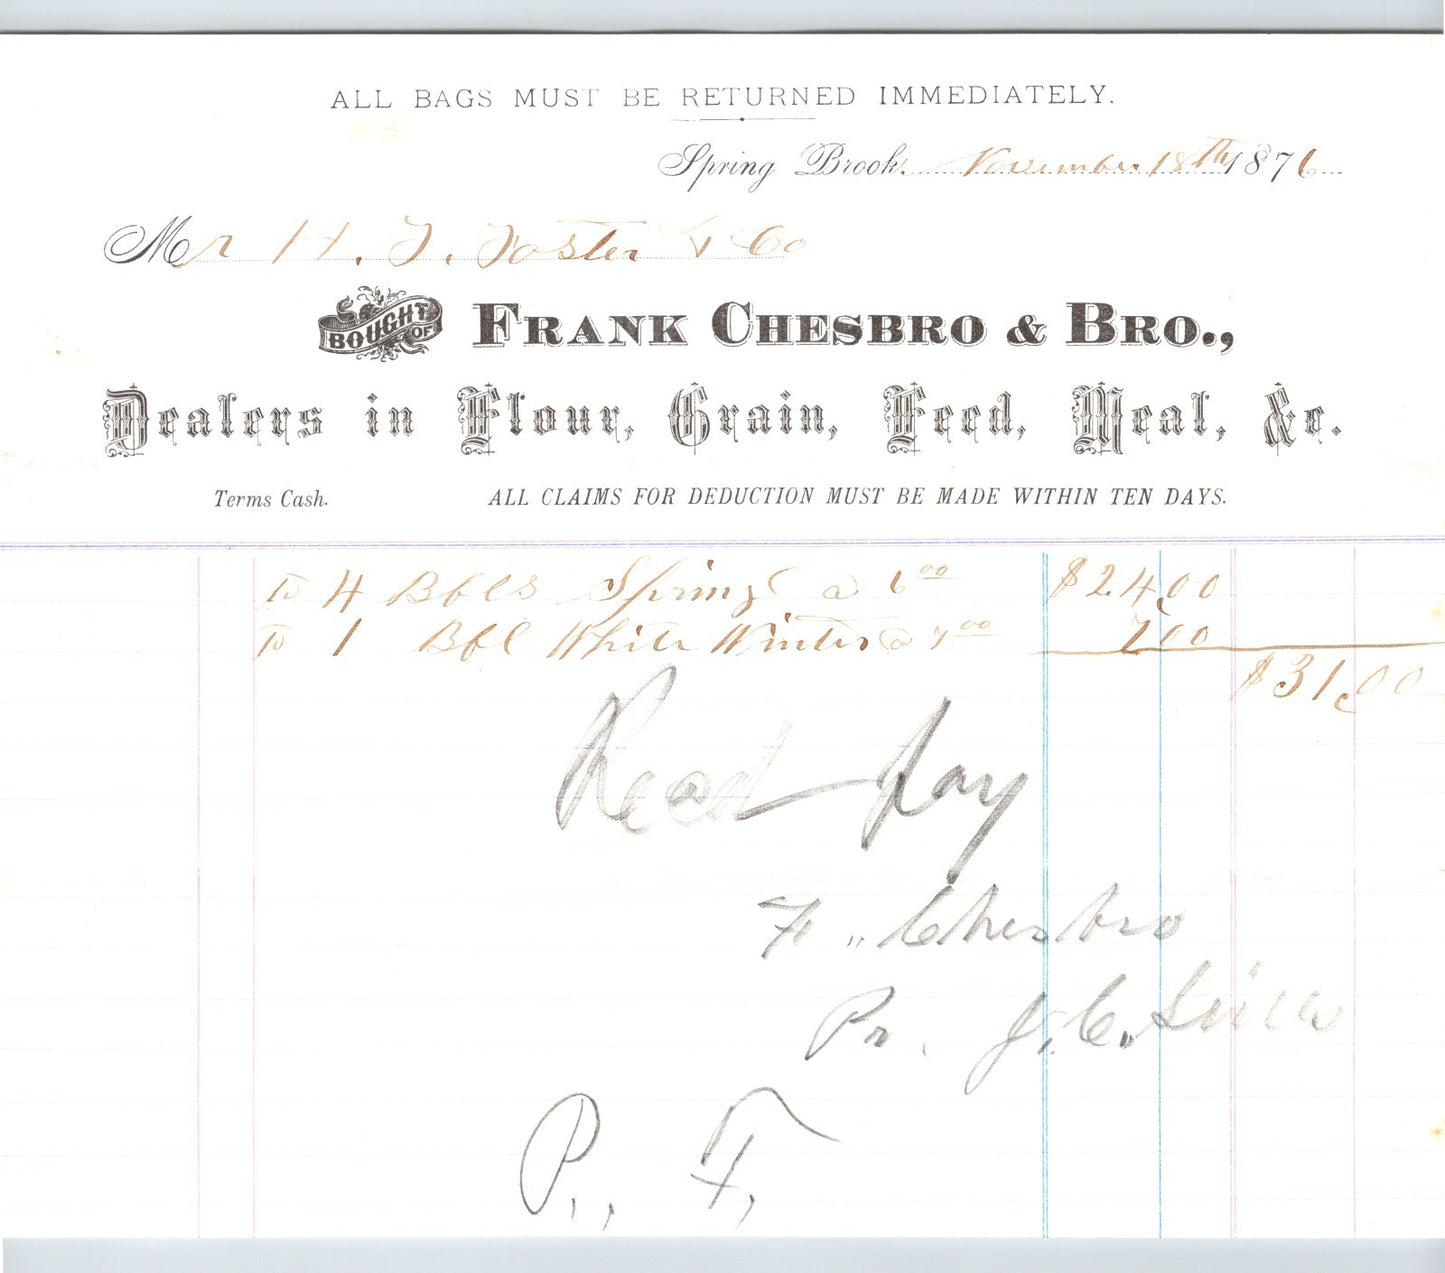 ALL BAGS MUST BE RETURNED IMMEDIATELY.
Spring Brook, November 18th 1876
Mr H. T. Foster & Co
BOUGHT OF FRANK CHESBRO & BRO.,
Dealers in Flour, Grain, Feed, Meal, &c.
Terms Cash. ALL CLAIMS FOR DEDUCTION MUST BE MADE WITHIN TEN DAYS.
To 4 Bbls Spring @ 6.00 $24.00
To 1 Bbl White Winter @ 7.00 7.00
$31.00
Recd pay
F. Chesbro
Pr. J. C.
P. F.